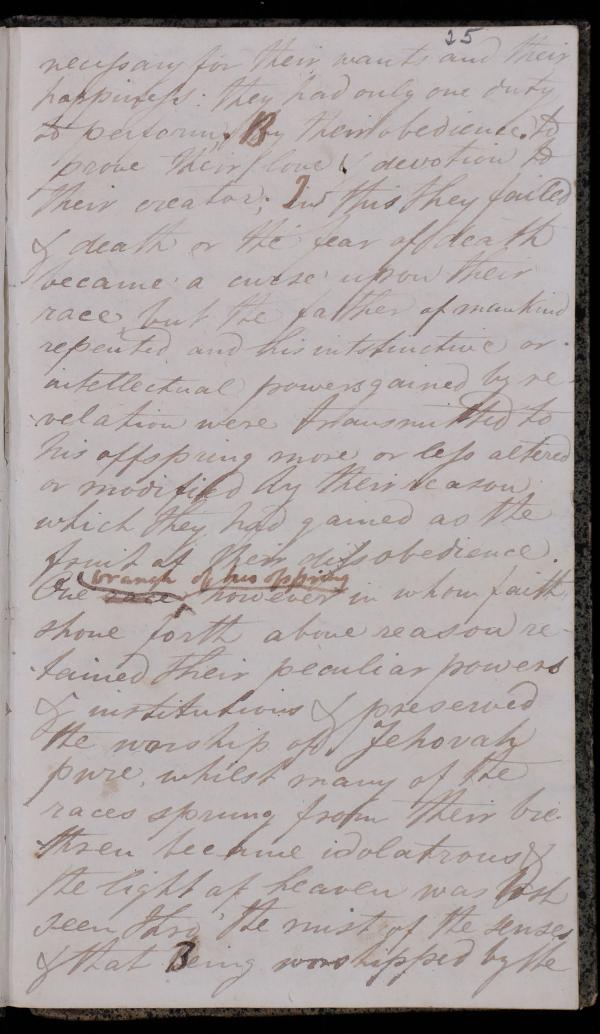 25
necessary for their wants and their
happiness: they had only one duty
to perform, By their obedience to
prove their love & devotion to
their creator; In this they failed
& death or the fear of death
became a curse upon their
race, but the father of mankind
repented and his instinctive or
intellectual powers gained by re-
velation were transmitted to
his offspring more or less altered
or modified by their reason
which they had gained as the
fruit of their disobedience.
branch of his offspring
One race however in whom faith
shone forth above reason re-
tained their peculiar powers
& institutions & preserved
the worship of Jehovah
pure, whilst many of the
races sprung from their bre-
thren became idolatrous &
the light of heaven was lost
seen thro' the mist of the senses
& that Being worshipped by the